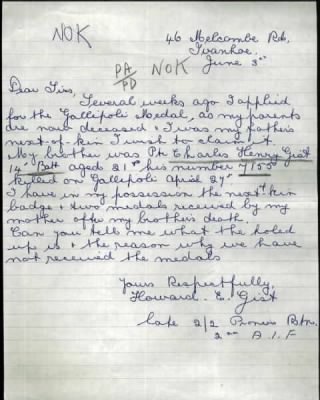 NOK
46 Melcombe Rd,
Ivanhoe.
June 3rd
PA/PD
NOK
Dear Sirs,
Several weeks ago I applied
for the Gallipoli Medal, as my parents
are now deceased & I was my brother's
next-of-kin I wish to claim it.
My brother was Pt. Charles Henry Gist
14th Batt aged 21 yrs his number
killed on Gallipoli April 27th.
I have in my possession the next kin
badge & two medals received by my
mother after my brother's death.
Can you tell me what the holed
up is & the reason why we have
not received the medals
Yours Respectfully,
Howard. E. Gist
late 2/2 Pioneer Btn.
2nd A.I.F